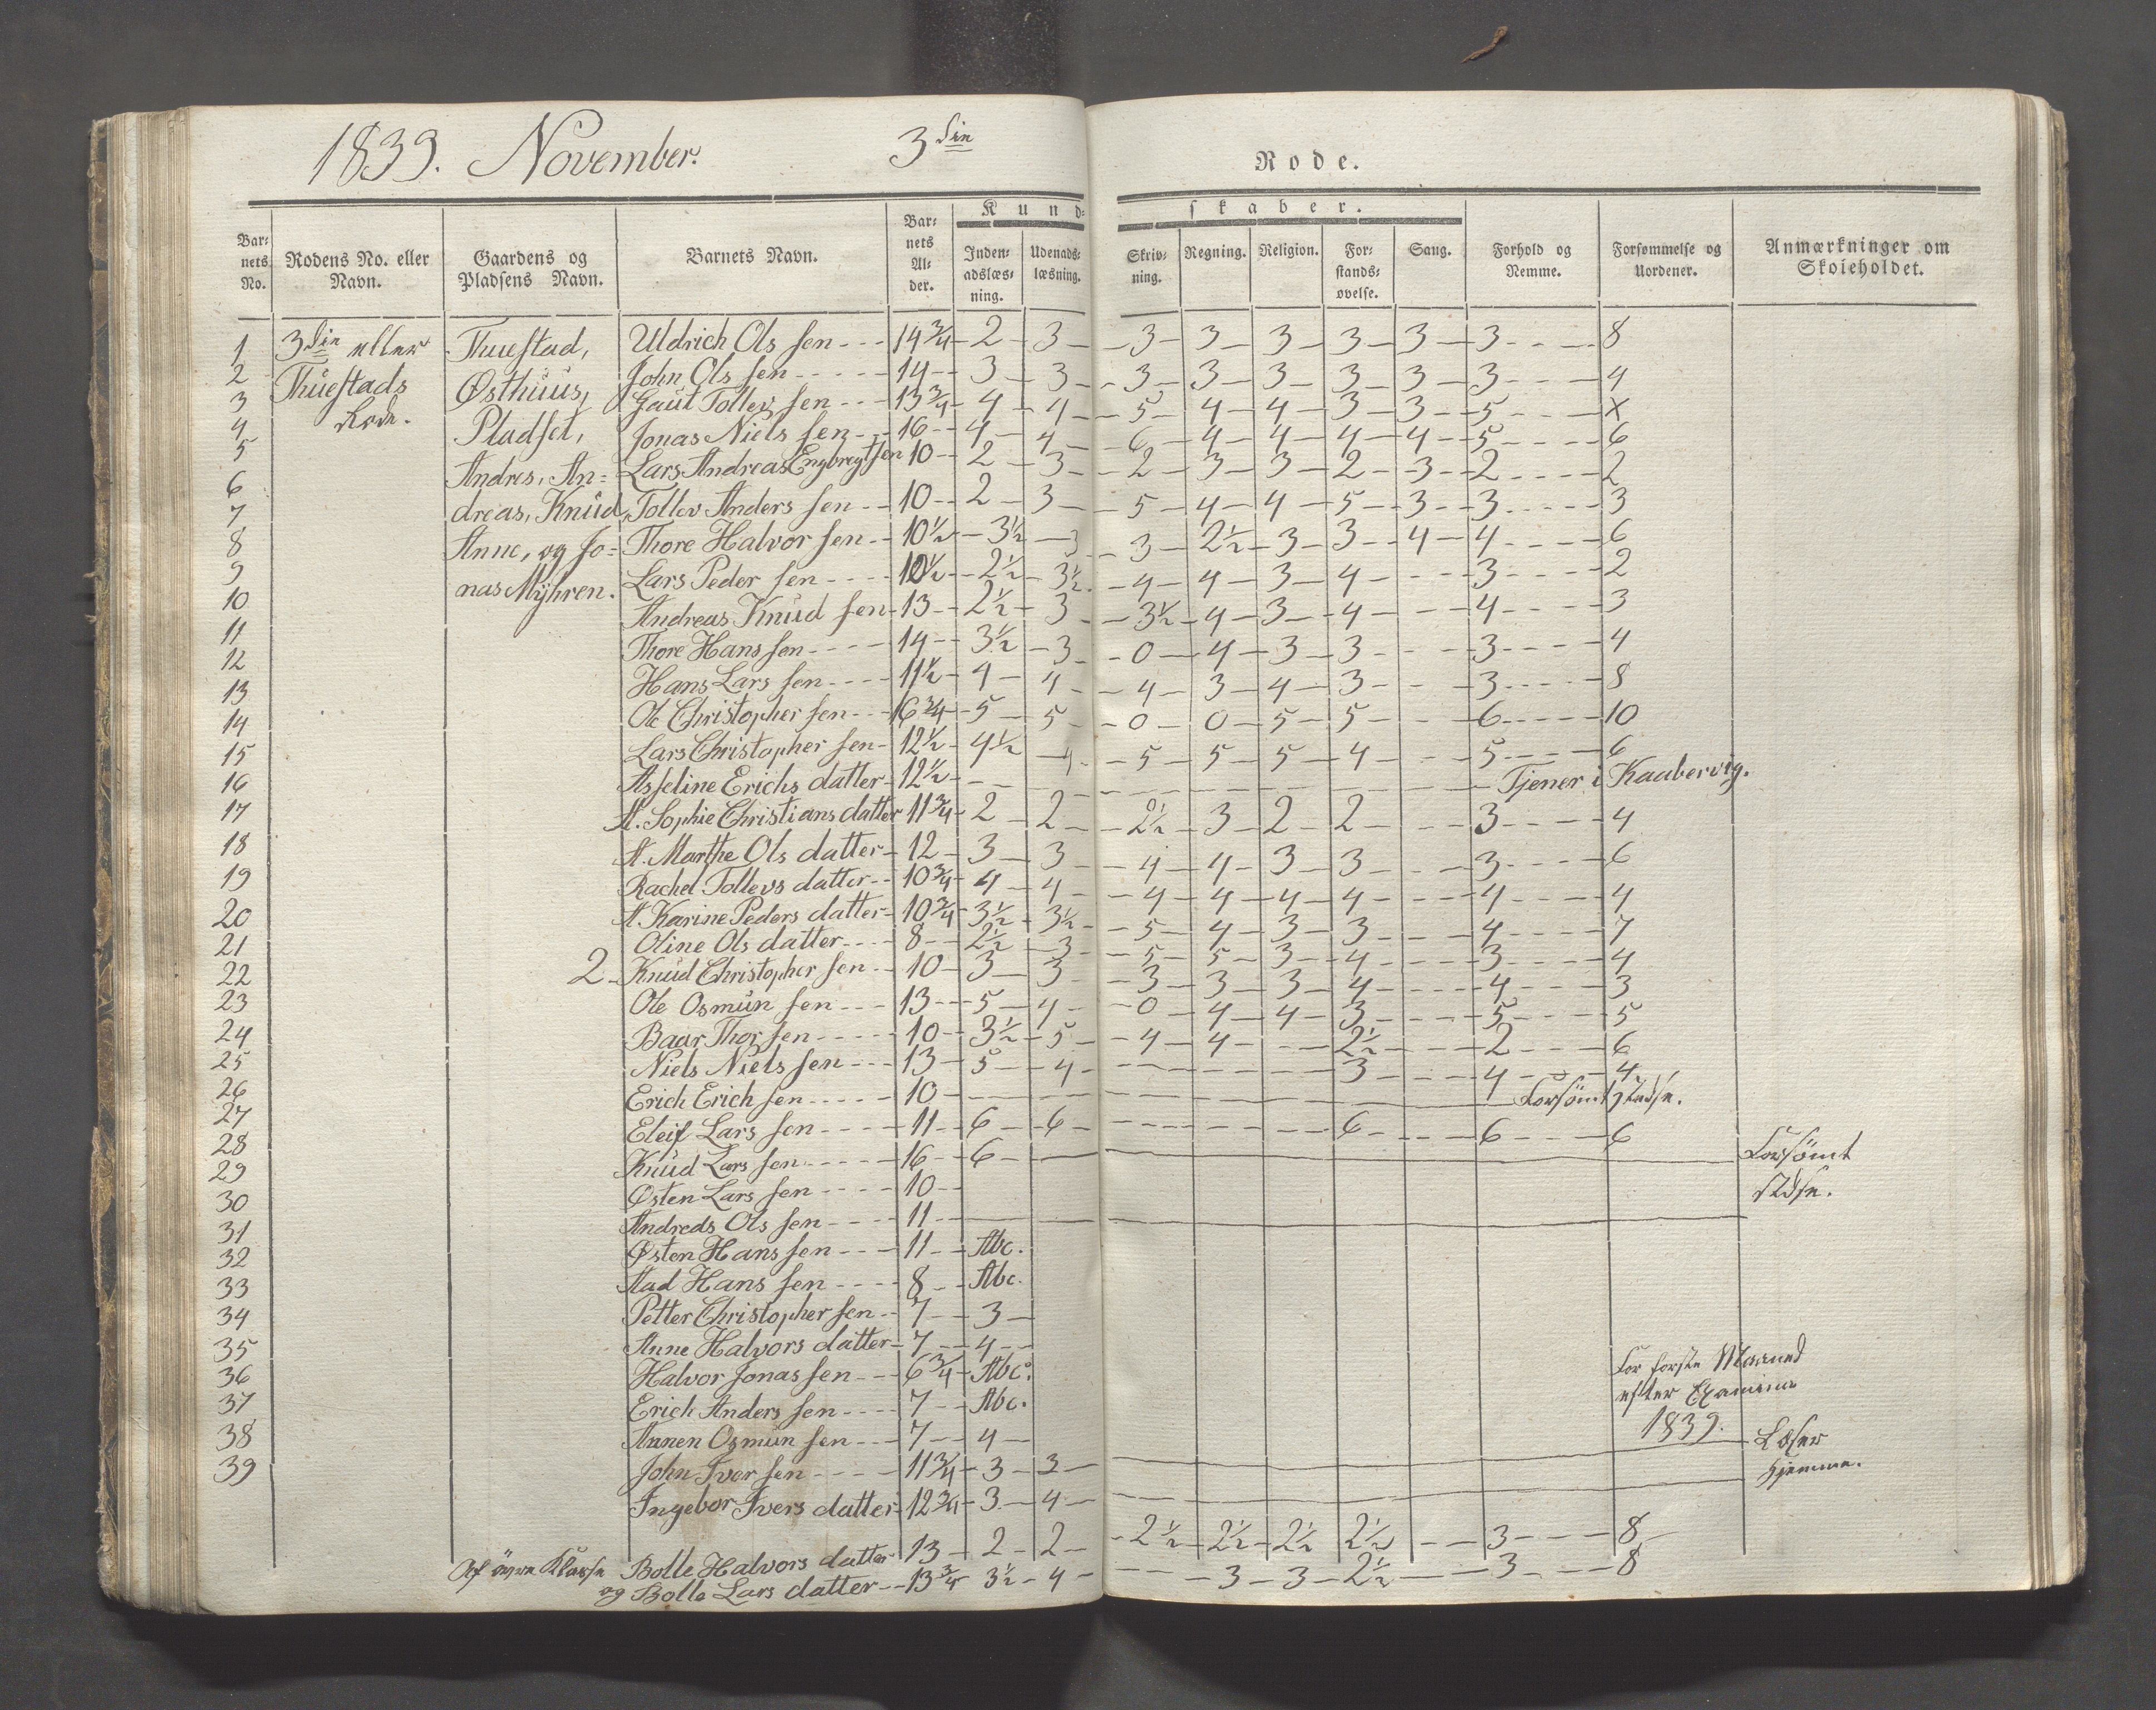 1839. November. 3die Rode.
Kundskaber.
Barnets No. Rodens No. eller Navn. Gaardens og Pladsens Navn. Barnets Navn. Barnets Alder. Indenadslæsning. Udenadslæsning. Skrivning. Regning. Religion. Forstandsøvelse. Sang. Forhold og Nemme. Forsømmelse og Uordener. Anmærkninger om Skoleholdet.
1 3die eller Thuestad, Uldrich Ols sen 14 3/4 2 3 3 3 3 3 3 3 8
2 Thuestads Østhuus, John Ols sen 14 3 3 3 3 3 3 3 3 4
3 Rode. Pladset, Gaut Tollev sen 13 3/4 4 4 5 4 4 3 3 5 X
4 Jonas Niels sen 16 4 4 6 4 4 4 4 5 6
5 Andres, An= Lars Andreas Engbregtsen 10 2 3 2 3 3 2 3 2 2
6 dreas, Knud, Tollev Anders sen 10 2 3 5 4 4 5 3 3 3
7 Anne, og Jo= Thore Halvor sen 10 1/2 3 1/2 3 3 2 1/2 3 3 4 4 6
8 nas Myhren. Lars Peder sen 10 1/2 2 1/2 3 1/2 4 4 3 4 3 2
9 Andreas Knud sen 13 2 1/2 3 3 1/2 4 3 4 4 3
10 Thore Hans sen 14 3 1/2 3 0 4 3 3 3 4
11 Hans Lars sen 11 1/2 4 4 4 3 4 3 3 8
12 Ole Christopher sen 16 3/4 5 5 0 0 5 5 6 10
13 Lars Christopher sen 12 1/2 4 1/2 4 5 5 5 4 5 6
14 Asseline Erichs datter 12 1/2 Tjener i Kaabervig.
15 A. Sophie Christians datter 11 3/4 2 2 2 1/2 3 2 2 3 4
16 A. Marthe Ols datter 12 3 3 4 4 3 3 3 6
17 Rachel Tollevs datter 10 3/4 4 4 4 4 4 4 4 4
18 A. Karine Peders datter 10 3/4 3 1/2 3 1/2 5 4 3 3 4 7
19 Oline Ols datter 8 2 1/2 3 5 5 3 4 3 4
20 2 Knud Christopher sen 10 3 3 3 3 3 4 4 3
21 Ole Osmun sen 13 5 4 0 4 4 3 5 5
22 Baar Thor sen 10 3 1/2 5 4 4 2 1/2 2 6
23 Niels Niels sen 13 5 4 3 4 4
24 Erich Erich sen 10 Forsömt stedse.
25 Eleif Lars sen 11 6 6 6 6 6
26 Knud Lars sen 16 6 Forsömt
27 Østen Lars sen 10 stedse.
28 Andreds Ols sen 11
29 Østen Hans sen 11 Abc.
30 Aad Hans sen 8 Abc.
31 Petter Christopher sen 7 3
32 Anne Halvors datter 7 4
33 Halvor Jonas sen 6 3/4 Abc. For forste Maaned
34 Erich Anders sen 7 Abc. efter Examine
35 Annen Osmun sen 7 4 1839.
36 John Iver sen 11 3/4 3 3 Læser
37 Ingebor Ivers datter 12 3/4 3 4 hjemme.
38
39
Af övre Klasse Bolle Halvors datter 13 2 2 2 1/2 2 1/2 2 1/2 2 1/2 3 8
og Bolle Lars datter 13 3/4 3 1/2 4 3 3 2 1/2 3 8